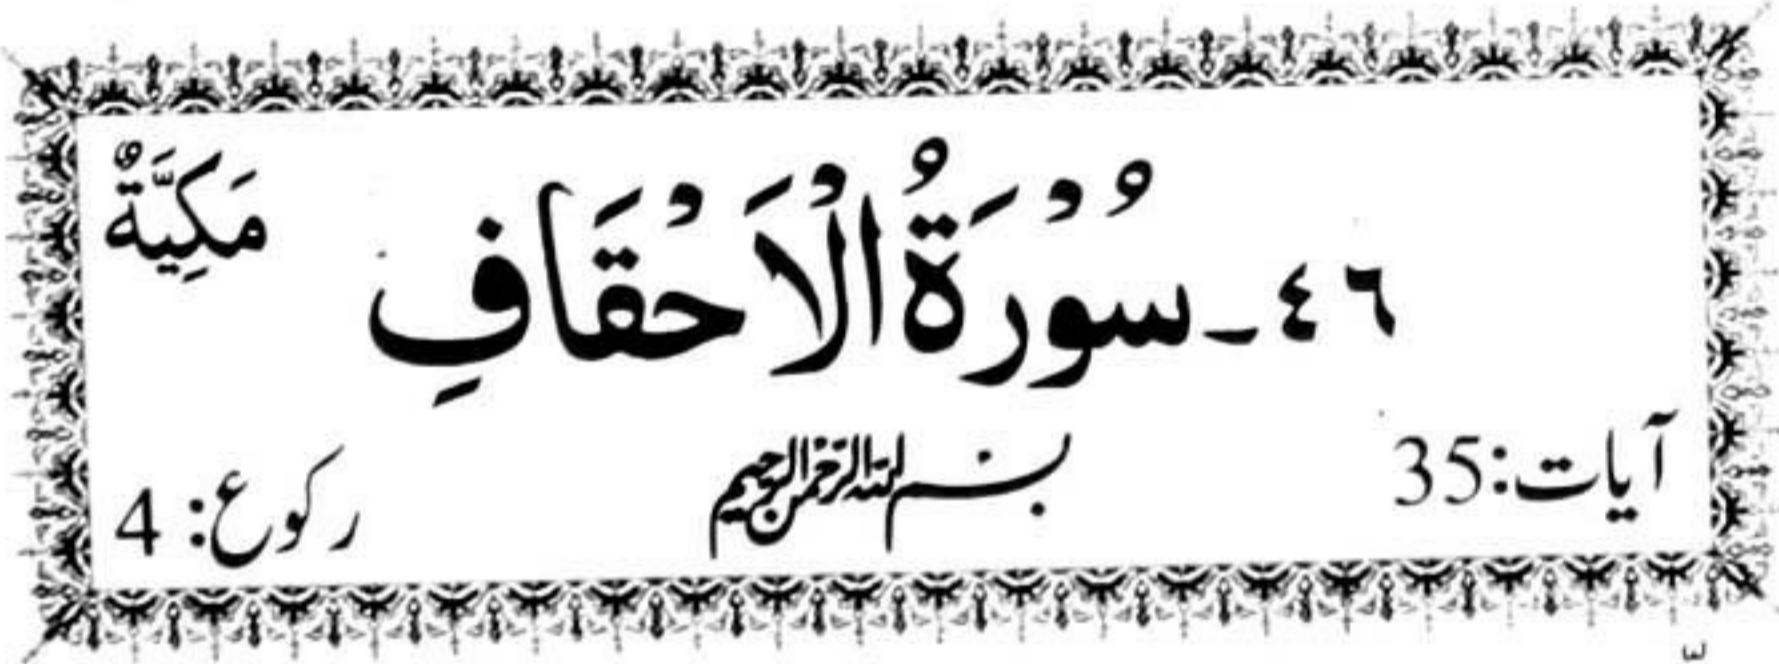 ٤٦ـ سُوْرَةُ الْاَحْقَافِ مَكِّيَّةٌ
آیات: 35 بسم الله الرحمن الرحيم رکوع: 4